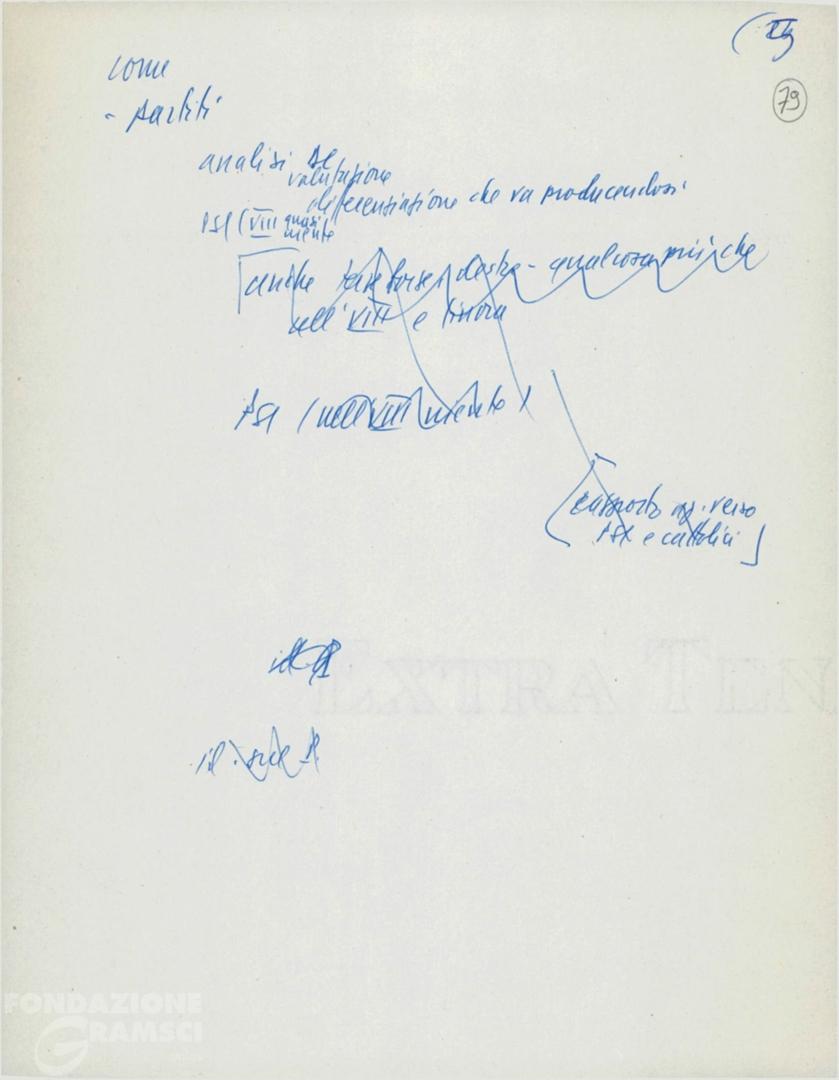 come
- partiti
analisi
valutazione
differenziazione che va producendosi
PSI (VIII quasi
niente
anche forse destre - qualcosa più che
nell'VIII e finora
PSI (nell'VIII niente)
[rapporto verso
PSI e cattolici]
il sul
79
EXTRA
FONDAZIONE
GRAMSCI